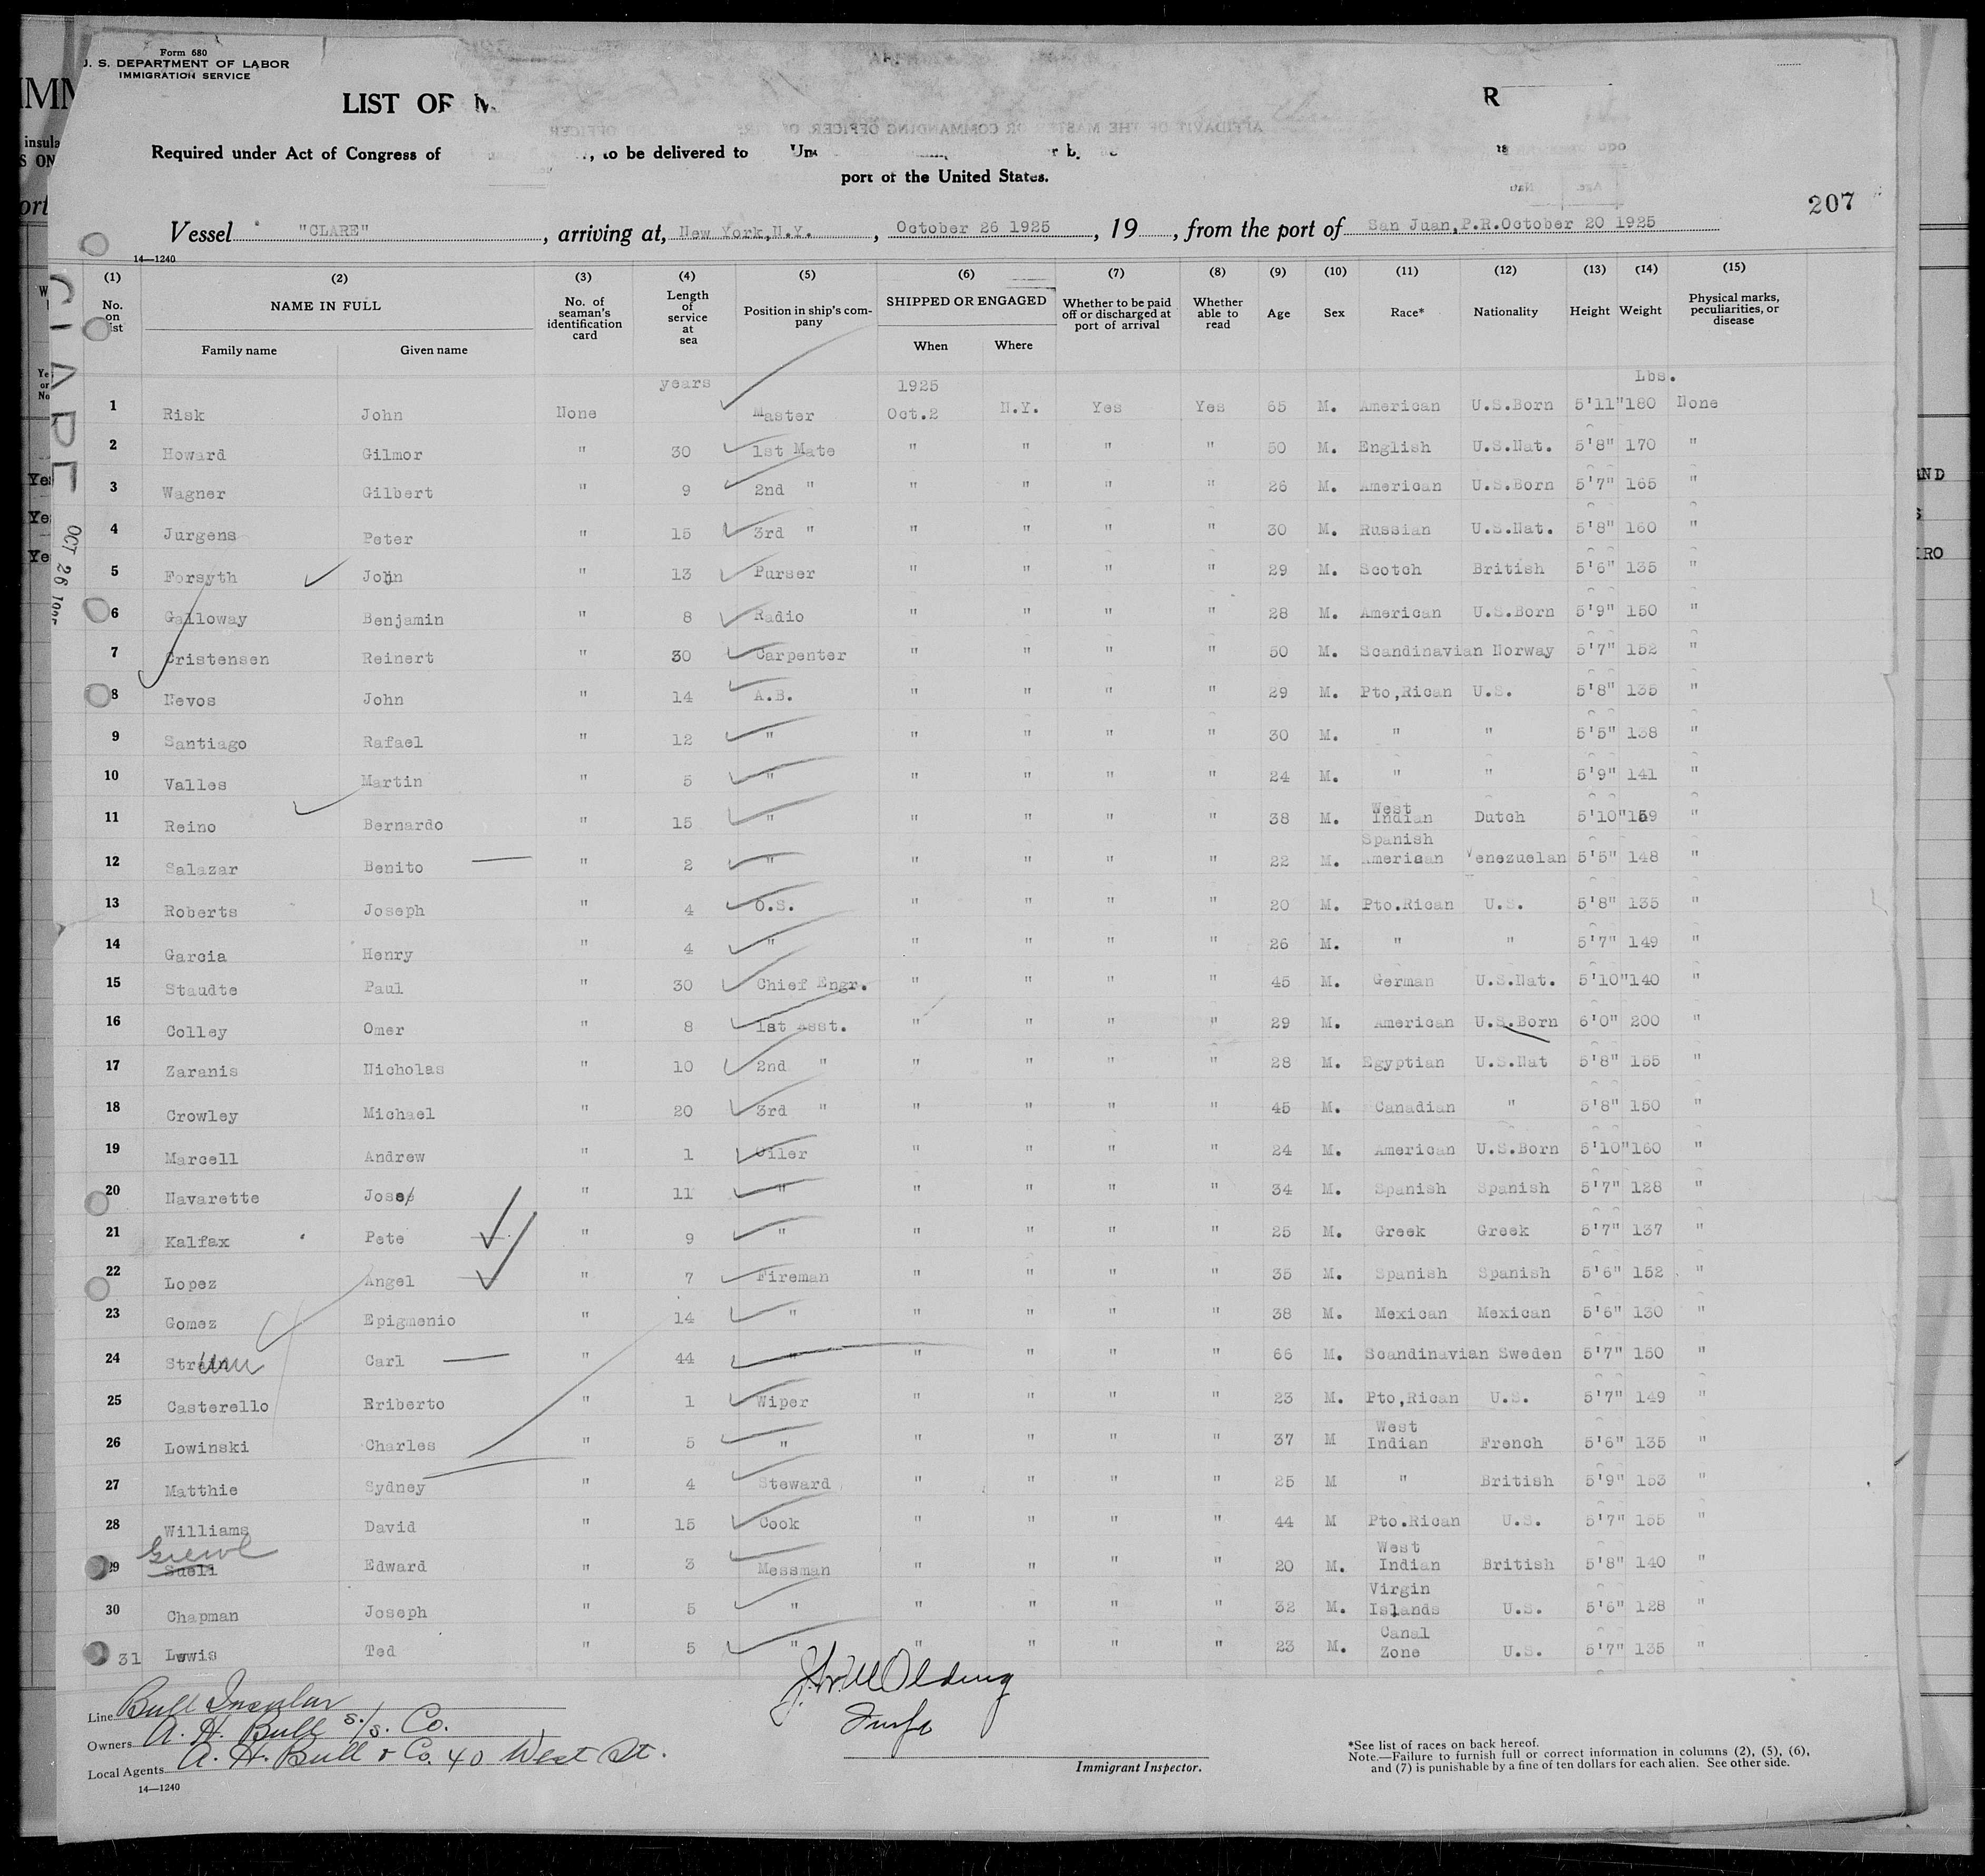 Form 680
U. S. DEPARTMENT OF LABOR
IMMIGRATION SERVICE
LIST OF
Required under Act of Congress of , to be delivered to
port of the United States.
207
Vessel "CLARE" , arriving at, New York,N.Y. , October 26 1925 , 19 , from the port of San Juan,P.R.October 20 1925
14—1240
(1) (2) (3) (4) (5) (6) (7) (8) (9) (10) (11) (12) (13) (14) (15)
No. on list NAME IN FULL Family name Given name No. of seaman's identification card Length of service at sea Position in ship's company SHIPPED OR ENGAGED When Where Whether to be paid off or discharged at port of arrival Whether able to read Age Sex Race* Nationality Height Weight Physical marks, peculiarities, or disease
years 1925 Lbs.
1 Risk John None Master Oct.2 N.Y. Yes Yes 65 M. American U.S.Born 5'11" 180 None
2 Howard Gilmor " 30 1st Mate " " " " 50 M. English U.S.Nat. 5'8" 170 "
3 Wagner Gilbert " 9 2nd " " " " " 26 M. American U.S.Born 5'7" 165 "
4 Jurgens Peter " 15 3rd " " " " " 30 M. Russian U.S.Nat. 5'8" 160 "
5 Forsyth John " 13 Purser " " " " 29 M. Scotch British 5'6" 135 "
6 Galloway Benjamin " 8 Radio " " " " 28 M. American U.S.Born 5'9" 150 "
7 Cristensen Reinert " 30 Carpenter " " " " 50 M. Scandinavian Norway 5'7" 152 "
8 Nevos John " 14 A.B. " " " " 29 M. Pto,Rican U.S. 5'8" 135 "
9 Santiago Rafael " 12 " " " " " 30 M. " " 5'5" 138 "
10 Valles Martin " 5 " " " " " 24 M. " " 5'9" 141 "
11 Reino Bernardo " 15 " " " " " 38 M. West Indian Dutch 5'10" 159 "
12 Salazar Benito " 2 " " " " " 22 M. Spanish American Venezuelan 5'5" 148 "
13 Roberts Joseph " 4 O.S. " " " " 20 M. Pto.Rican U.S. 5'8" 135 "
14 Garcia Henry " 4 " " " " " 26 M. " " 5'7" 149 "
15 Staudte Paul " 30 Chief Engr. " " " " 45 M. German U.S.Nat. 5'10" 140 "
16 Colley Omer " 8 1st Asst. " " " " 29 M. American U.S.Born 6'0" 200 "
17 Zaranis Nicholas " 10 2nd " " " " " 28 M. Egyptian U.S.Nat 5'8" 155 "
18 Crowley Michael " 20 3rd " " " " " 45 M. Canadian " 5'8" 150 "
19 Marcell Andrew " 1 Oiler " " " " 24 M. American U.S.Born 5'10" 160 "
20 Navarette Jose " 11 " " " " " 34 M. Spanish Spanish 5'7" 128 "
21 Kalfax Pete " 9 " " " " " 25 M. Greek Greek 5'7" 137 "
22 Lopez Angel " 7 Fireman " " " " 35 M. Spanish Spanish 5'6" 152 "
23 Gomez Epigmenio " 14 " " " " " 38 M. Mexican Mexican 5'6" 130 "
24 Carl " 44 " " " " " 66 M. Scandinavian Sweden 5'7" 150 "
25 Casterello Eriberto " 1 Wiper " " " " 23 M. Pto,Rican U.S. 5'7" 149 "
26 Lowinski Charles " 5 " " " " " 37 M West Indian French 5'6" 135 "
27 Matthie Sydney " 4 Steward " " " " 25 M " British 5'9" 153 "
28 Williams David " 15 Cook " " " " 44 M Pto.Rican U.S. 5'7" 155 "
29 Edward " 3 Messman " " " " 20 M. West Indian British 5'8" 140 "
30 Chapman Joseph " 5 " " " " " 32 M. Virgin Islands U.S. 5'6" 128 "
31 Lewis Ted " 5 " " " " " 23 M. Canal Zone U.S. 5'7" 135 "
Line Bull Insular
Owners A. H. Bull s/s. Co.
Local Agents A. H. Bull & Co. 40 West St.
14—1240
Immigrant Inspector.
*See list of races on back hereof.
Note.—Failure to furnish full or correct information in columns (2), (5), (6),
and (7) is punishable by a fine of ten dollars for each alien. See other side.
CLARE OCT 26